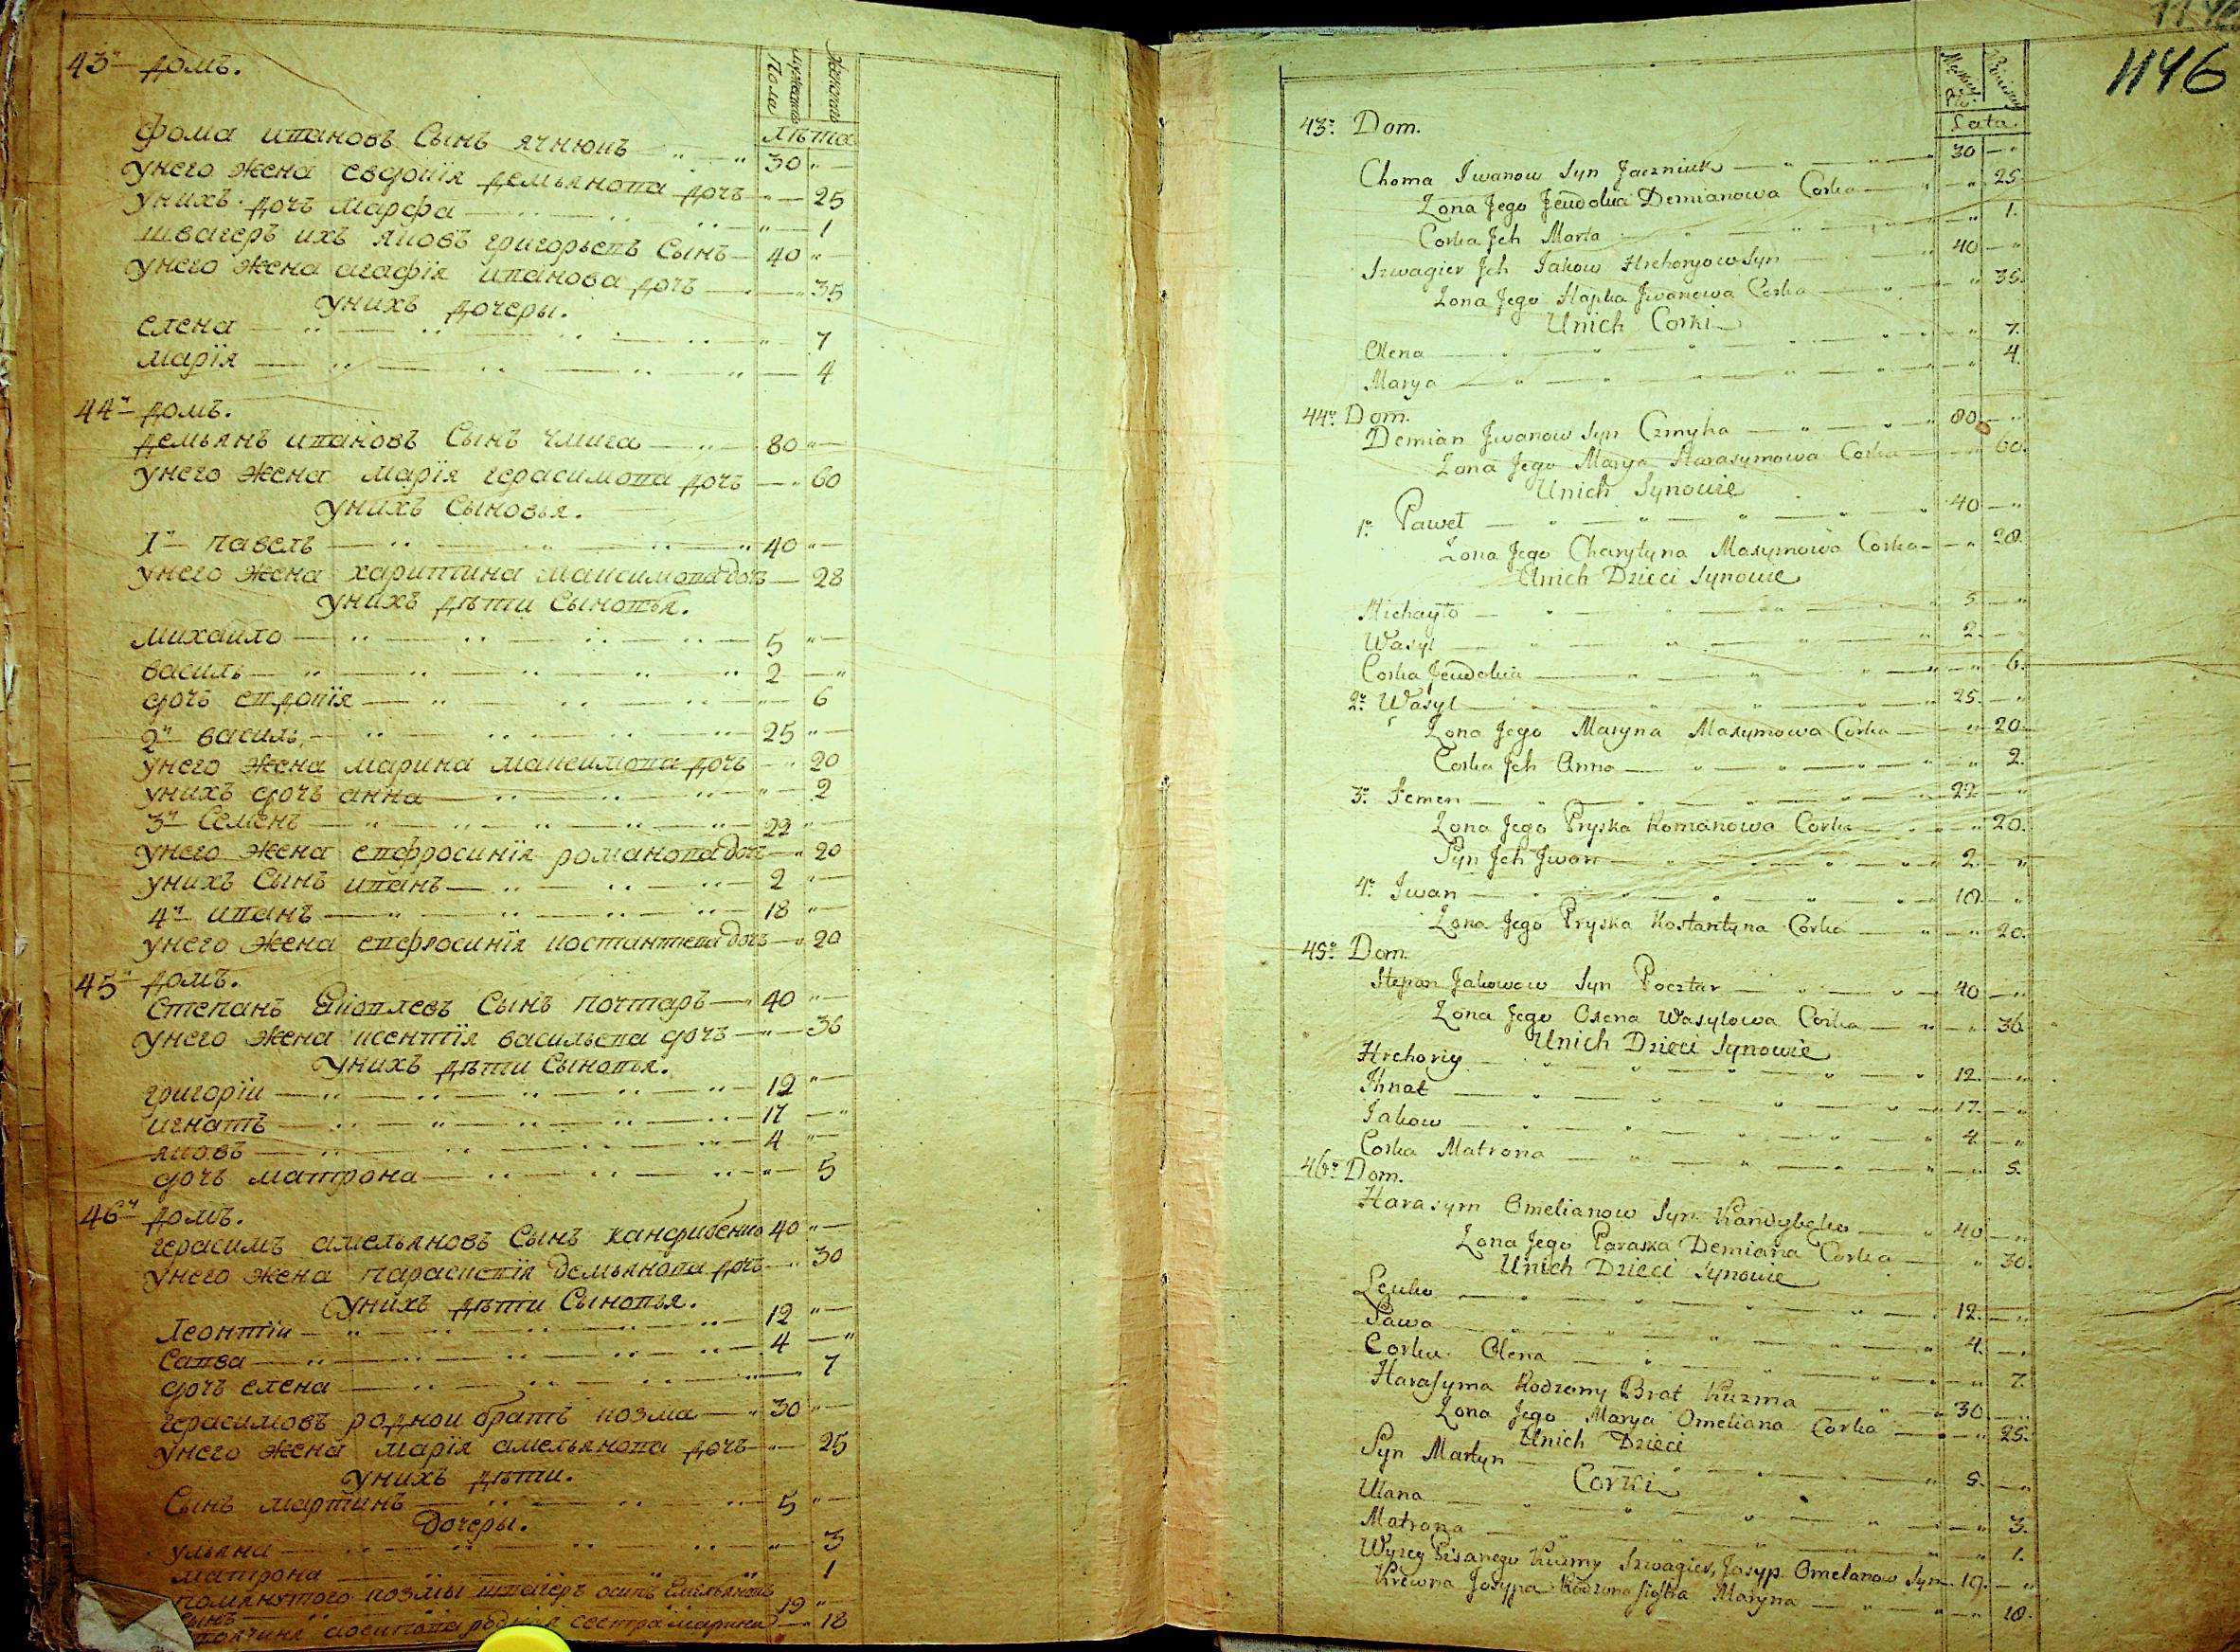 43й домъ.
Мужеска Пола
Женска
лѣта
Фома ивановъ Сынъ ячнюкъ 30
унего жена евдокїя демьянова дочъ 25
унихъ дочъ марфа 1
швагеръ ихъ яковъ григорьевъ Сынъ 40
унего жена агафїя иванова дочъ 35
унихъ дочеры.
елена 7
марїя 4
44й домъ.
демьянъ ивановъ Сынъ чмига 80
унего жена марїя герасимова дочъ 60
унихъ Сыновья.
1й павелъ 40
унего жена харитина максимова дочъ 28
унихъ дѣти Сыновья.
михаило 5
василь 2
дочъ евдокїя 6
2й василь 25
унего жена марина максимова дочъ 20
унихъ дочъ анна 2
3й Семенъ 22
унего жена евфросинїя романова дочъ 20
унихъ Сынъ иванъ 2
4й иванъ 18
унего жена евфросинїя костантева дочъ 20
45й домъ.
Степанъ Яковлевъ Сынъ почтаръ 40
унего жена ксентїя васильева дочъ 36
унихъ дѣти Сыновья.
григорїи 12
игнатъ 17
яковъ 4
дочъ матрона 5
46й домъ.
герасимъ амельяновъ Сынъ кандибенко 40
унего жена парасковїя демьянова дочъ 30
унихъ дѣти Сыновья.
Леонтїи 12
Савва 4
дочъ елена 7
герасимовъ роднои братъ козма 30
унего жена марїя амельянова дочъ 25
унихъ дѣти.
Сынъ мартинъ 5
дочеры.
ульяна 3
матрона 1
помянутого козмы швагеръ осипъ Емельяновъ
Сынъ 19
осипова родная сестра марина 18
1146
Lata.
43o. Dom.
Choma Iwanow Syn Jaczniuk 30
Zona Jego Jeudokia Demianowa Corka 25
Corka Jch Marta 1.
Szwagier Jch Jakow Hrehoryow Syn 40
Zona Jego Hapka Jwanowa Corka 35.
Unich Corki
Olena 7.
Marya 4.
44o. Dom.
Demian Jwanow Syn Czmyha 80
Zona Jego Marya Harasymowa Corka 60.
Unich Synowie
1o. Paweł 40
Zona Jego Charytyna Maxymowa Corka 28.
Unich Dzieci Synowie
Michayło 5.
Wasyl 2.
Corka Jeudokia 6.
2o. Wasyl 25.
Zona Jego Maryna Maxymowa Corka 20.
Corka Jch Anna 2.
3o. Semen 22.
Zona Jego Pryska Romanowa Corka 20.
Syn Jch Jwan 2.
4o. Iwan 18.
Zona Jego Pryska Kostantyna Corka 20.
45o. Dom.
Stepan Jakowow Syn Pocztar 40
Zona Jego Oxena Wasylowa Corka 36.
Unich Dzieci Synowie
Hrehoriy 12.
Ihnat 17.
Jakow 4.
Corka Matrona 5.
46o. Dom.
Harasym Omelianow Syn Kandybeko 40
Zona Jego Paraska Demiana Corka 30.
Unich Dzieci Synowie
Lewko 12.
Sawa 4.
Corka Olena 7.
Harasyma Rodzony Brat Kuzma 30.
Zona Jego Marya Omeliana Corka 25.
Unich Dzieci
Syn Martyn 5.
Corki
Ulana 3.
Matrona 1.
Wyzey Pisanego Kuzmy Szwagier, Josyp Omelanow Syn 19.
Krewna Josypa Rodzona Siostra Maryna 18.